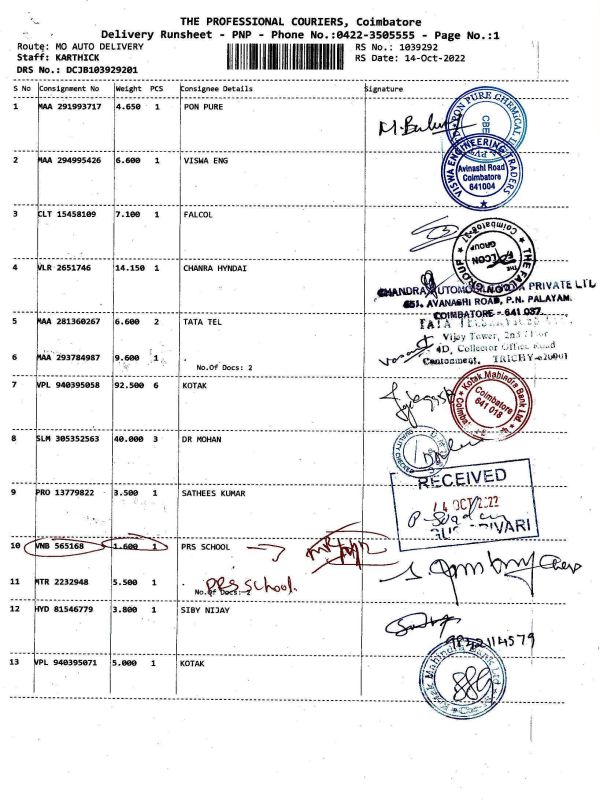 THE PROFESSIONAL COURIERS, Coimbatore
Delivery Runsheet - PNP - Phone No.:0422-3505555 - Page No.:1
Route: MO AUTO DELIVERY RS No.: 1039292
Staff: KARTHICK RS Date: 14-Oct-2022
DRS No.: DCJB103929201
S No Consignment No Weight PCS Consignee Details Signature
1 MAA 291993717 4.650 1 PON PURE
PON PURE CHEMICAL
CBE
2 MAA 294995426 6.600 1 VISWA ENG
VISWA ENGINEERING TRADERS
Avinashi Road
Coimbatore
641004
3 CLT 15458109 7.100 1 FALCOL
THE FALCON GROUP
Coimbatore-37
THE
FALCON
GROUP
4 VLR 2651746 14.150 1 CHANRA HYNDAI
PRIVATE LTD
651, AVANASHI ROAD, P.N. PALAYAM.
COIMBATORE - 641 037.
5 MAA 281360267 6.600 2 TATA TEL
TATA
Vijay Tower, 2nd Floor
4D, Collector Office Road
Cantonment, TRICHY-620001
6 MAA 293784987 9.600 1
No.Of Docs: 2
7 VPL 940395058 92.500 6 KOTAK
Kotak Mahindra Bank Ltd
Coimbatore
641 018
8 SLM 305352563 40.000 3 DR MOHAN
QUALITY CHECKED
9 PRO 13779822 3.500 1 SATHEES KUMAR
RECEIVED
14 OCT 2022
10 VNB 565168 1.600 1 PRS SCHOOL
11 MTR 2232948 5.500 1 PRS School.
No.Of Docs: 2
12 HYD 81546779 3.800 1 SIBY NIJAY
9842114579
13 VPL 940395071 5.000 1 KOTAK
Kotak Mahindra Bank Ltd